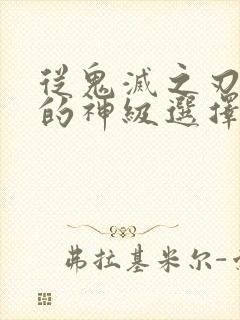 從鬼滅之刃
的神級選擇
弗拉基米尔-